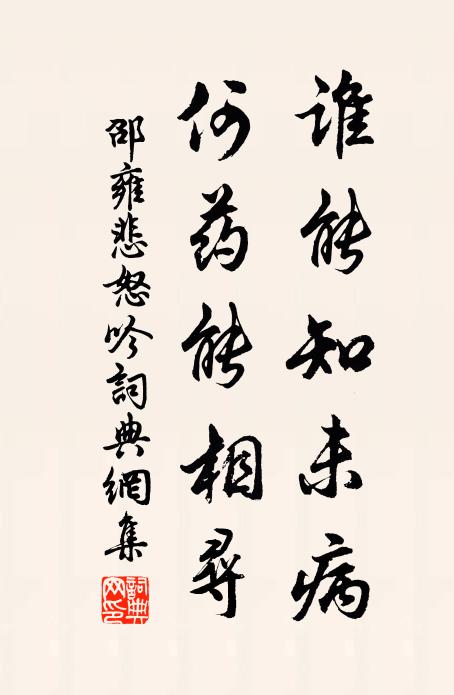 誰能知未病
何药能相尋
邵雍悲怒吟詞典網集
詞典
网印